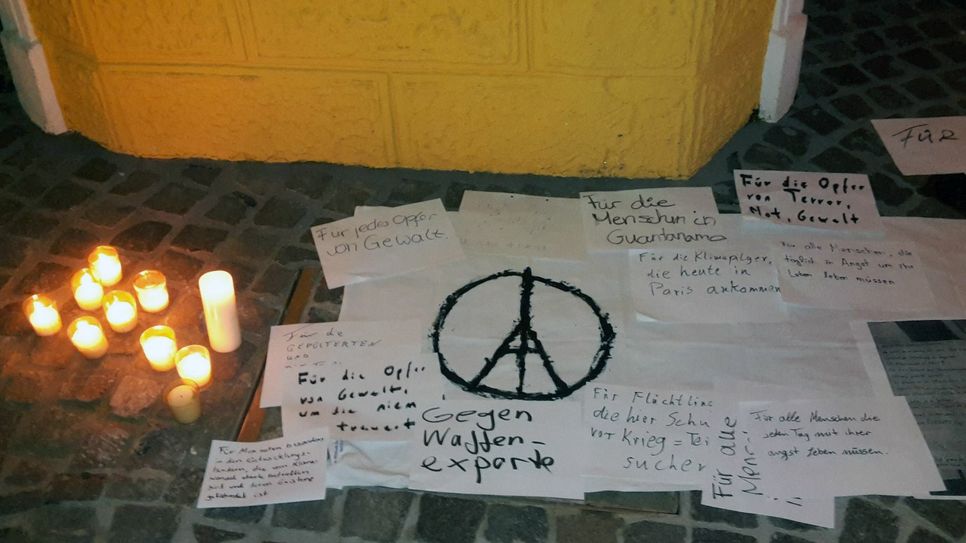 Für jedes Opfer
von Gewalt.
Für die
Menschen in
Guantanamo
Für die Opfer
von Terror,
Not, Gewalt
FÜR
Für die Klimapilger,
die heute in
Paris ankommen
Für alle Menschen, die
täglich in Angst um ihr
Leben leben müssen
Für die
GEFOLTERTEN
UND
Für die Opfer
von Gewalt,
um die niem
trauert
Gegen
Waffen-
exporte
Für Flüchtline
die hier Schu
vor Krieg = Te
sucher
Für alle
Men
Für alle Menschen die
jeden Tag mit ihrer
angst leben müssen.
Für Menschen besonders
in den Entwicklungs-
ländern, die vom Klima-
wandel stark betroffen
sind und deren Existenz
gefährdet ist